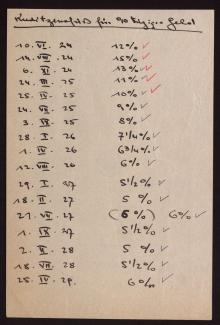 für 90 tägiges Geld
10. VI. 24 12%
14. VIII. 24 15%
6. XI. 24 13%
24. III. 25 11%
25. IV. 25 10%
24. VII. 25 9%
3. IX. 25 8%
28. I. 26 7 1/4%
1. IV. 26 6 3/4%
12. VIII. 26 6%
29. I. 27 5 1/2%
18. II. 27 5 %
21. VII. 27 (6%) 6%
1. IX. 27 5 1/2%
2. II. 28 5 %
18. VII. 28 5 1/2%
25. IV. 29. 6%